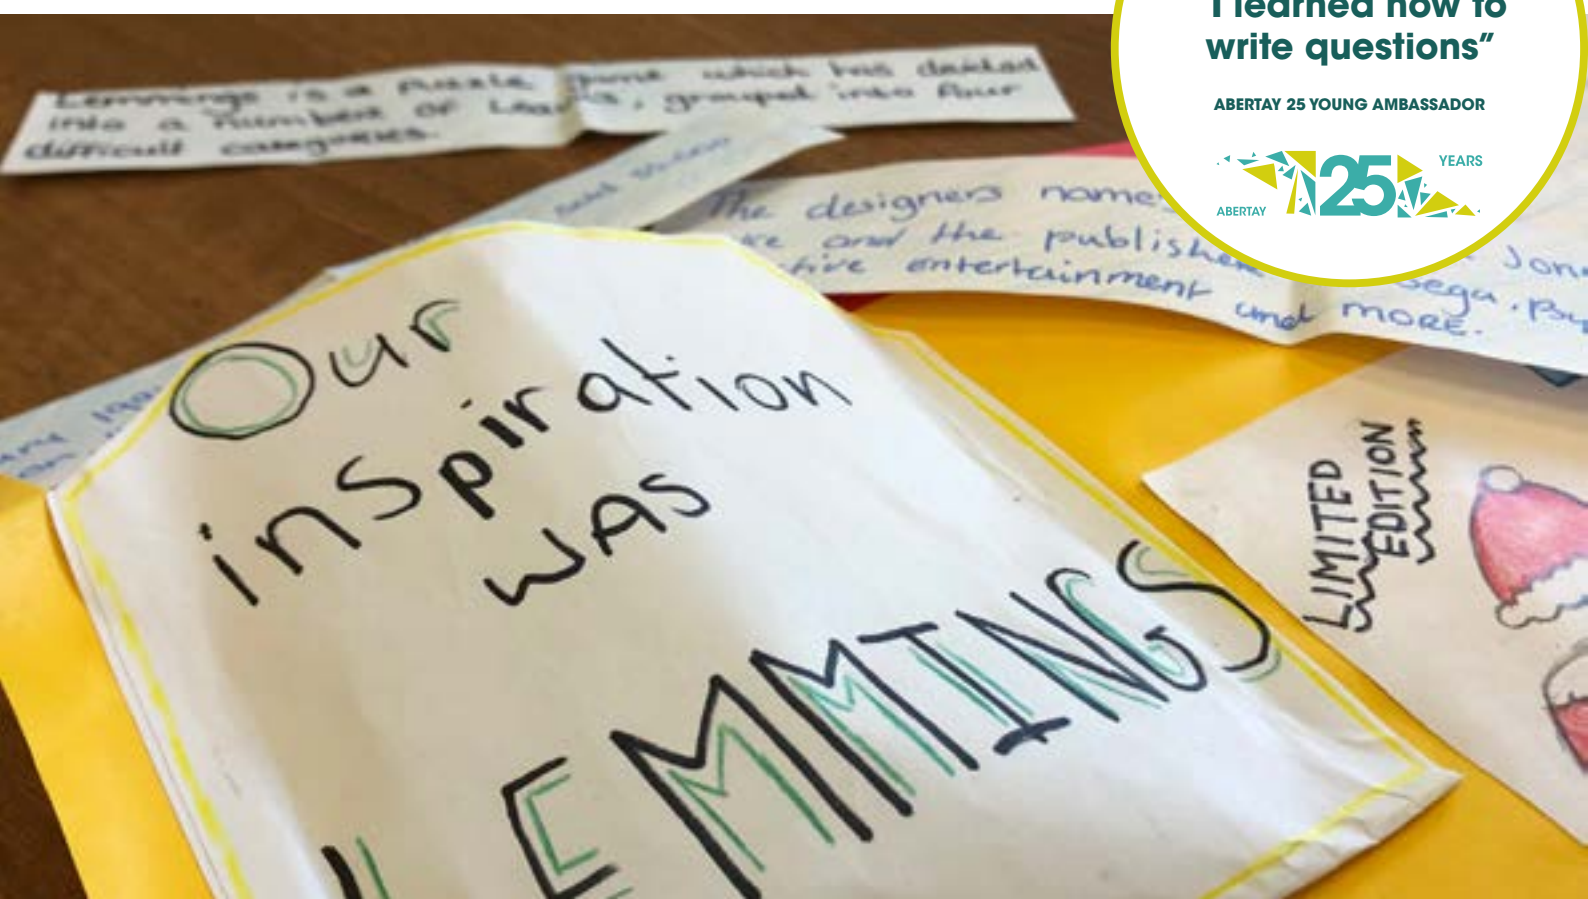 I learned how to
write questions”
ABERTAY 25 YOUNG AMBASSADOR
ABERTAY 25 YEARS
Lemmings is a Puzzle game which has
into a number of , grouped into four
difficult categories.
The designers names
and the publisher Jon
entertainment sega.
and MORE.
Our
inspiration
WAS
LEMMINGS
LIMITED
EDITION